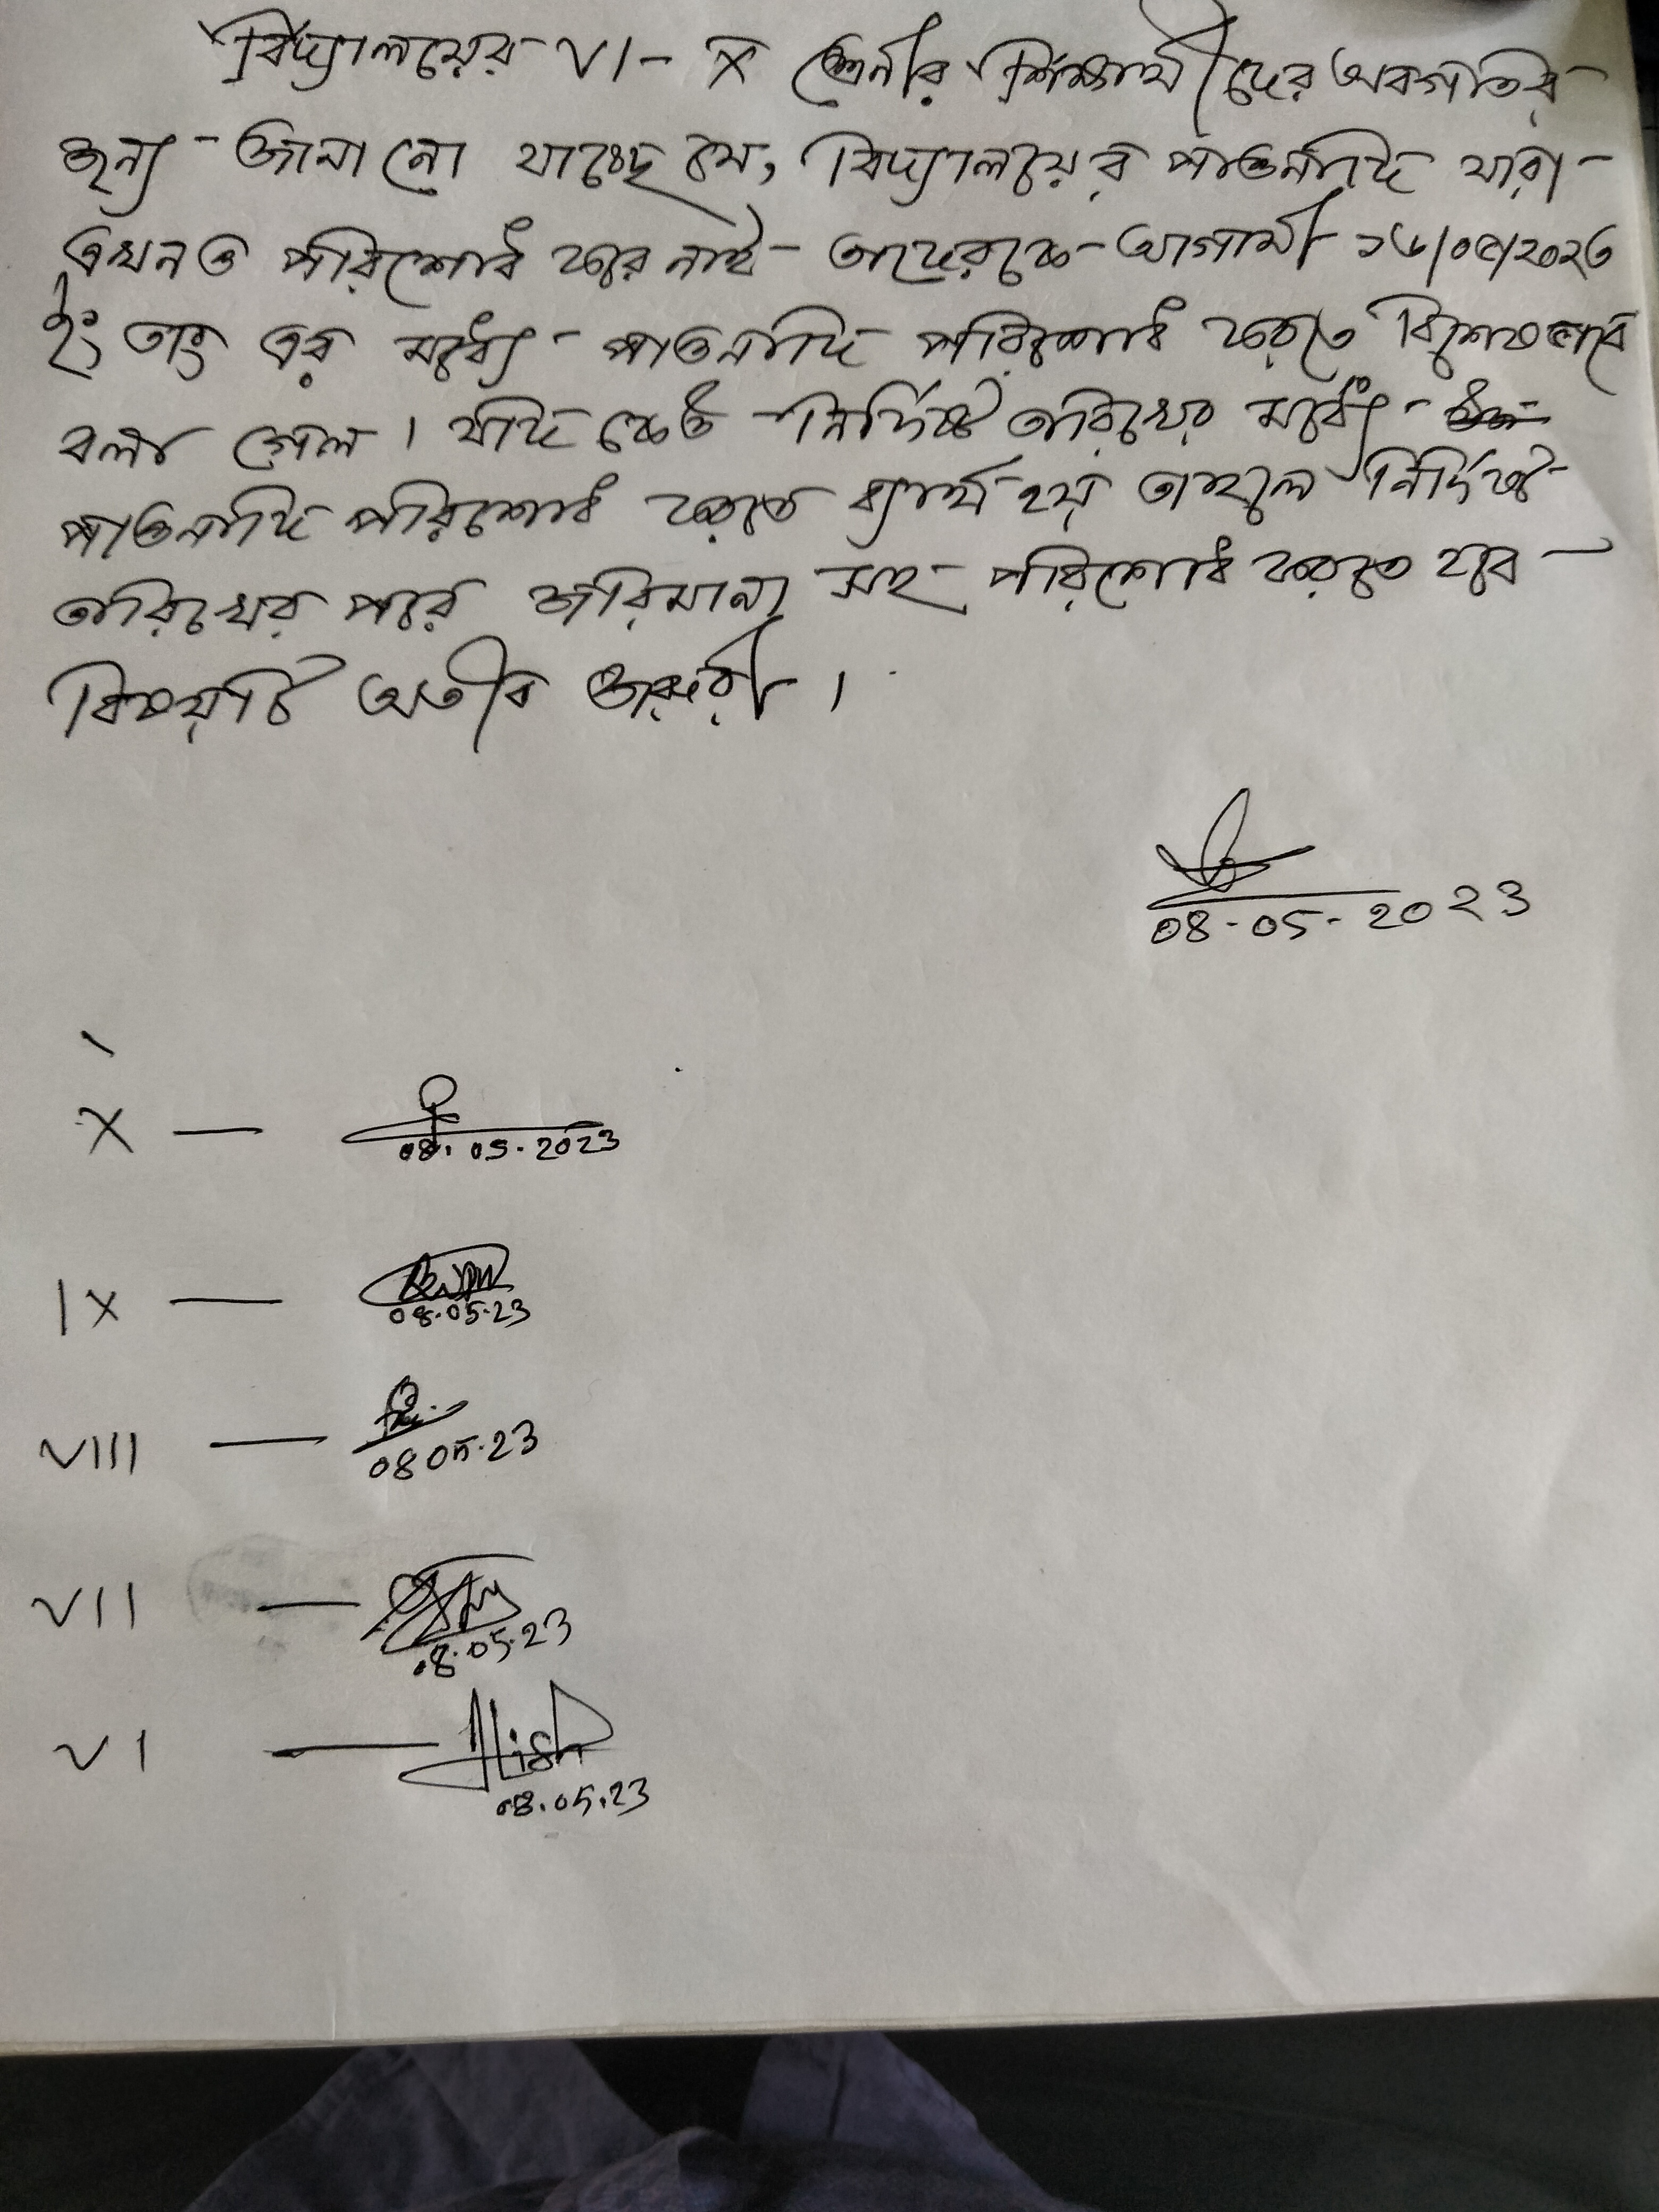 বিদ্যালয়ের VI - X শ্রেনীর শিক্ষার্থীদের অবগতির
জন্য জানানো যাচ্ছে যে, বিদ্যালয়ের পাওনাদি যারা
এখনও পরিশোধ করে নাই তাদেরকে আগামী ১৬/০৫/২০২৩
ইং তাং এর মধ্যে পাওনাদি পরিশোধ করতে বিশেষভাবে
বলা গেল। যদি কেউ নির্দিষ্ট তারিখের মধ্যে
পাওনাদি পরিশোধ করতে ব্যার্থ হয় তাহলে নির্দিষ্ট
তারিখের পরে জরিমানা সহ পরিশোধ করতে হবে
বিষয়টি অতীব জরুরী।
08-05-2023
X — 08.05.2023
IX — 08.05.23
VIII — 08 05.23
VII — 08.05.23
VI — 08.05.23